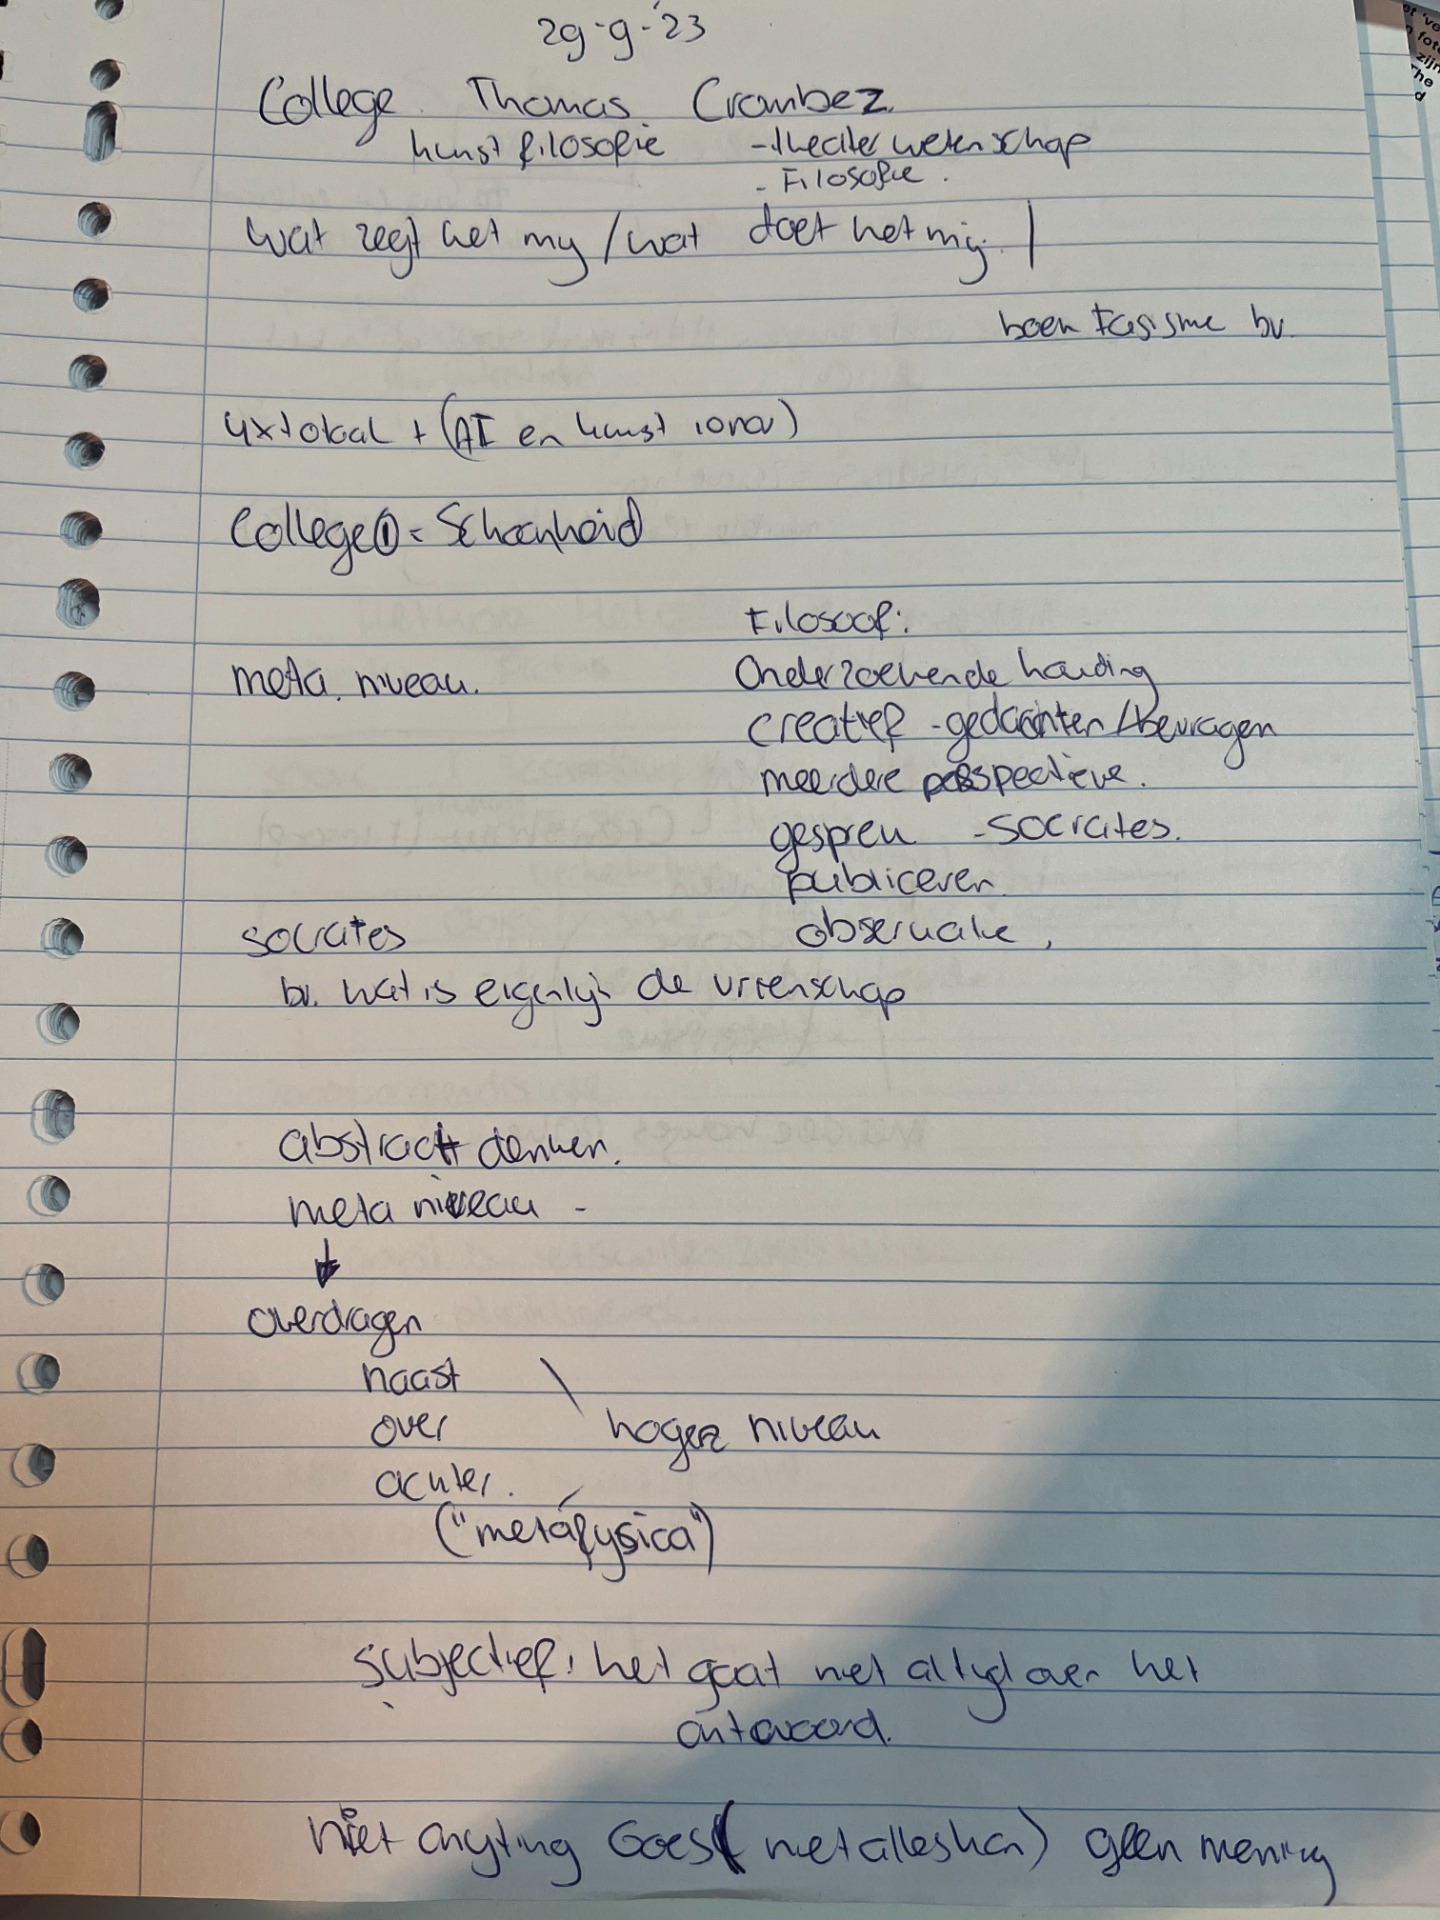 29-9-'23
College Thomas Crombez.
kunst filosofie - theater wetenschap
- Filosofie.
wat zegt het mij / wat doet het mij.
boek fasisme bv.
4x totaal + (AI en kunst 10 nov)
College 1 = Schoonheid
Filosoof:
meta. niveau. Onderzoekende houding
creatief - gedachten / bevragen
meerdere perspectieve.
gesprek - Socrates.
publiceren
socrates observatie,
bv. wat is eigenlijk de vriendschap
abstract denken.
meta niveau -
↓
overdragen
naast
over hoger niveau
achter.
("metafysica")
subjectief: het gaat niet altijd over het
antwoord.
niet anyting Goes (niet alles kan) geen mening